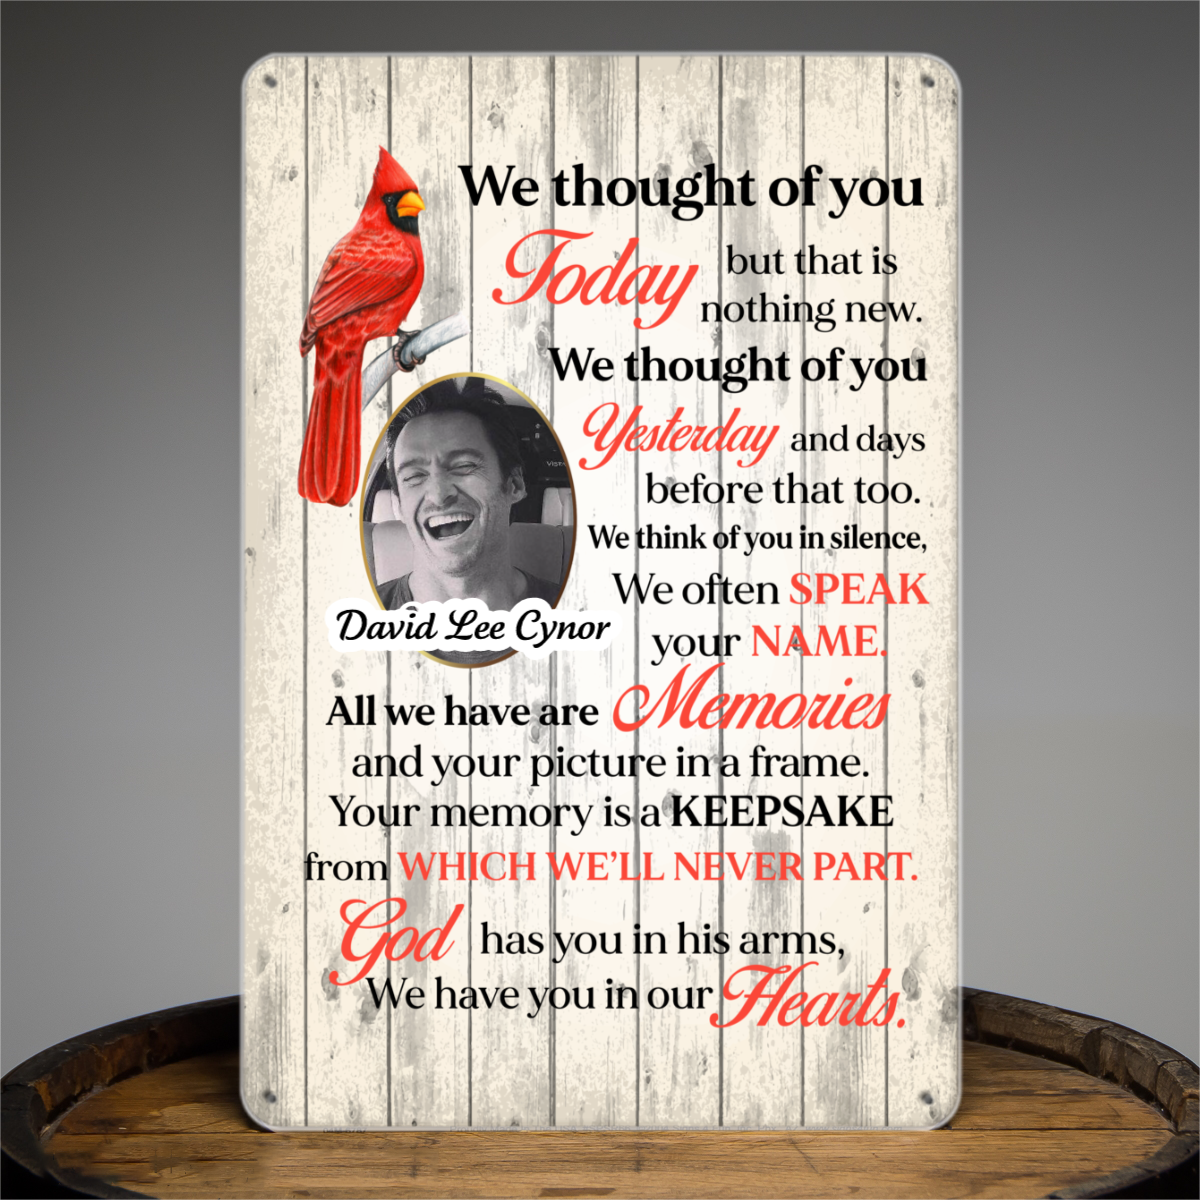 We thought of you
Today but that is
nothing new.
We thought of you
Yesterday and days
before that too.
We think of you in silence,
We often SPEAK
your NAME.
David Lee Cynor
All we have are Memories
and your picture in a frame.
Your memory is a KEEPSAKE
from WHICH WE'LL NEVER PART.
God has you in his arms,
We have you in our Hearts.